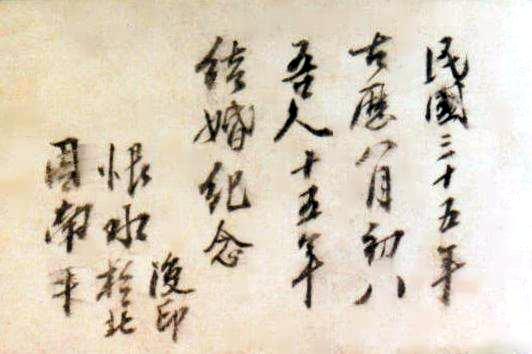 民國三十五年
古歷八月初八
吾人十五年
結婚紀念
復印
恨水於北
周南 平